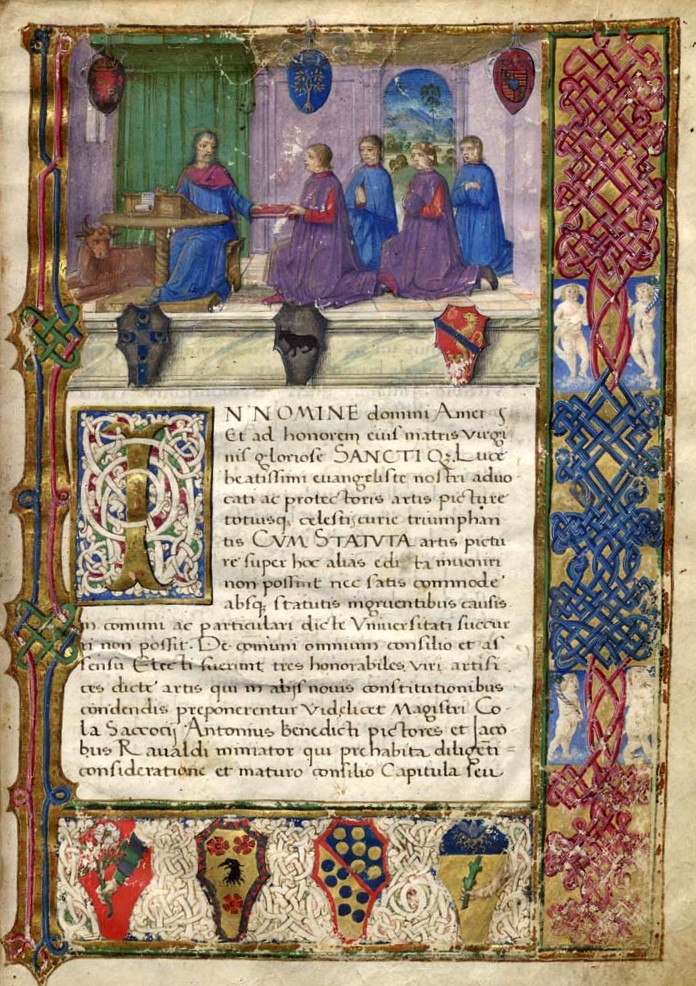 IN NOMINE domini Amet
Et ad honorem eius matris virgi
nis gloriose SANCTI Q; Luce
beatissimi euangeliste nostri aduo
cati ac protectoris artis picture
totiusq; celestis curie triumphan
tis CVM STATVTA artis pictu
re super hoc alias edita inueniri
non possint nec satis commode
absq; statutis ingruentibus causis
in comuni ac particulari dicte Vniuersitati succur
ri non possit. De comuni omnium consilio et as
sensu Electi fuerint tres honorabiles viri artifi
ces dicte artis qui in abijs nouis constitutionibus
condendis preponerentur Videlicet Magistri Co
la Saccocij Antonius benedicti pictores et Jaco
bus Raualdi miniator qui prehabita diligeti
consideratione et maturo consilio Capitula seu